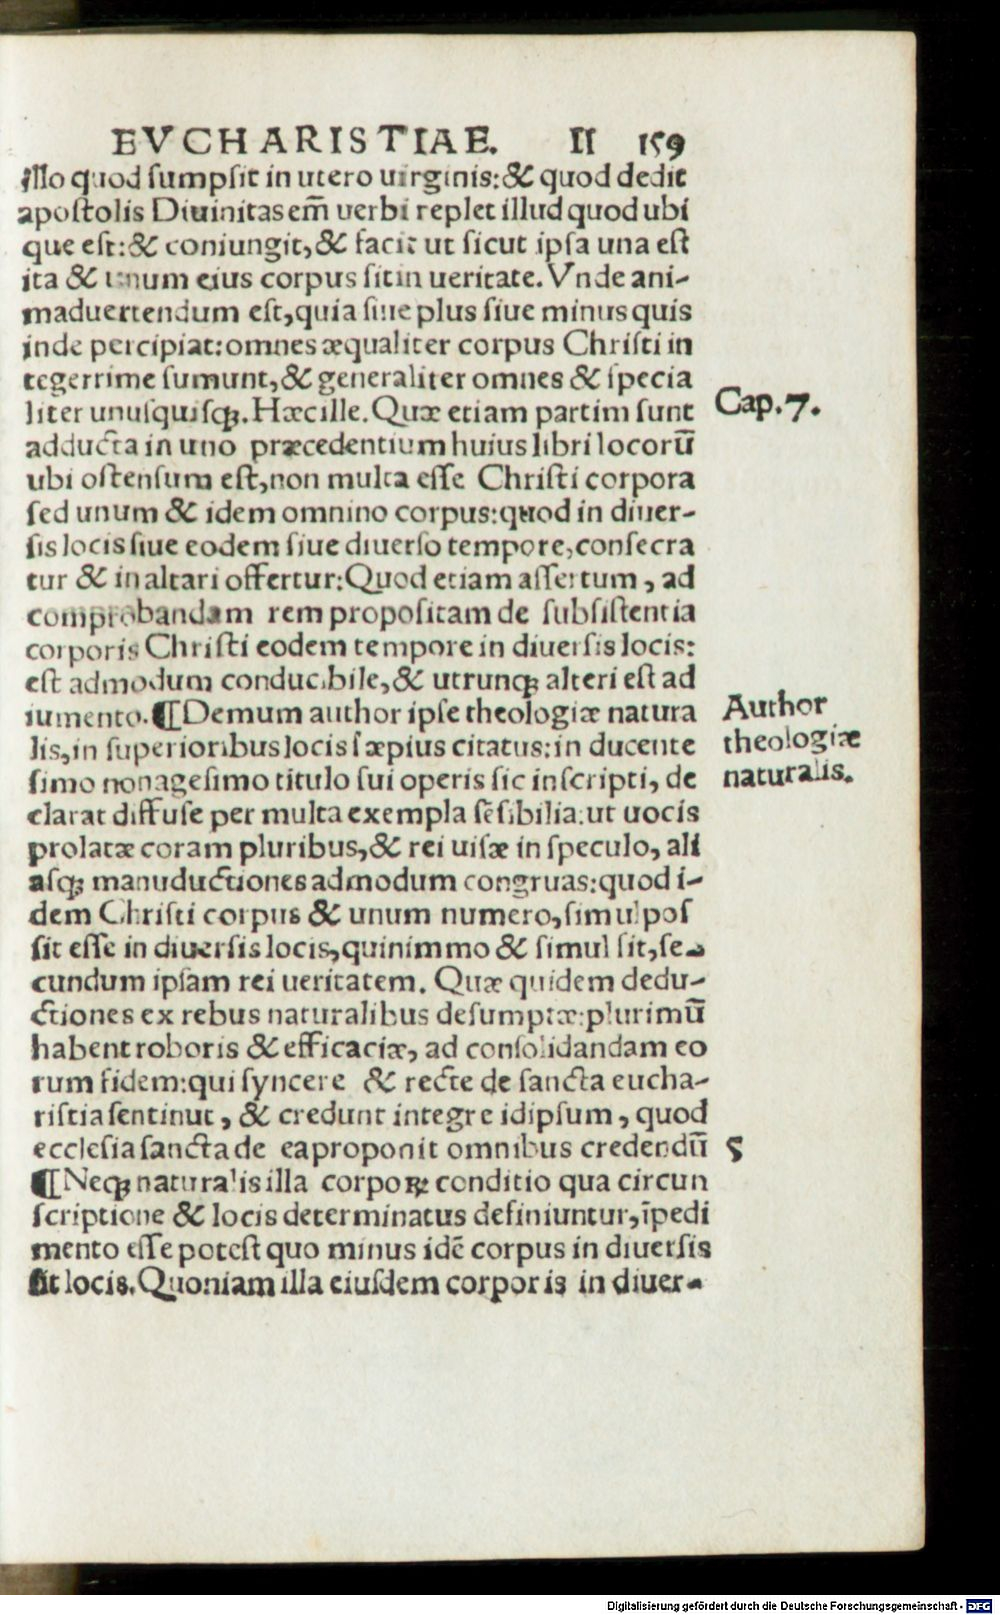 EVCHARISTIAE. II 159
illo quod ſumpſit in utero uirginis:& quod dedit
apoſtolis Diuinitas em̃ uerbi replet illud quod ubi
que eſt:& coniungit,& facit ut ſicut ipſa una eſt
ita & unum eius corpus ſit in ueritate. Vnde ani-
maduertendum eſt, quia ſiue plus ſiue minus quis
inde percipiat: omnes æqualiter corpus Chriſti in
tegerrime ſumunt,& generaliter omnes & ſpecia
liter unuſquiſqꝫ. Hæc ille. Quæ etiam partim ſunt
Cap.7.
adducta in uno præcedentium huius libri locorū
ubi oſtenſum eſt, non multa eſſe Chriſti corpora
ſed unum & idem omnino corpus: quod in diuer-
ſis locis ſiue eodem ſiue diuerſo tempore, conſecra
tur & in altari offertur: Quod etiam aſſertum, ad
comprobandam rem propoſitam de ſubſiſtentia
corporis Chriſti eodem tempore in diuerſis locis:
eſt admodum conducibile,& utrunqꝫ alteri eſt ad
iumento. ¶Demum author ipſe theologiæ natura
Author
lis, in ſuperioribus locis ſæpius citatus: in ducente
theologiæ
ſimo nonageſimo titulo ſui operis ſic inſcripti, de
naturalis.
clarat diffuſe per multa exempla ſēſibilia: ut uocis
prolatæ coram pluribus,& rei uiſæ in ſpeculo, ali
aſqꝫ manuductiones admodum congruas: quod i-
dem Chriſti corpus & unum numero, ſimul poſ
ſit eſſe in diuerſis locis, quinimmo & ſimul ſit, ſe-
cundum ipſam rei ueritatem. Quæ quidem dedu-
ctiones ex rebus naturalibus deſumptæ: plurimū
habent roboris & efficaciæ, ad conſolidandam eo
rum fidem: qui ſyncere & recte de ſancta eucha-
riſtia ſentinut, & credunt integre idipſum, quod
eccleſia ſancta de ea proponit omnibus credendū
5
¶Neqꝫ naturalis illa corpoꝝ conditio qua circun
ſcriptione & locis determinatus definiuntur, īpedi
mento eſſe poteſt quo minus idē corpus in diuerſis
ſit locis. Quoniam illa eiuſdem corporis in diuer-
Digitalisierung gefördert durch die Deutsche Forschungsgemeinschaft - DFG